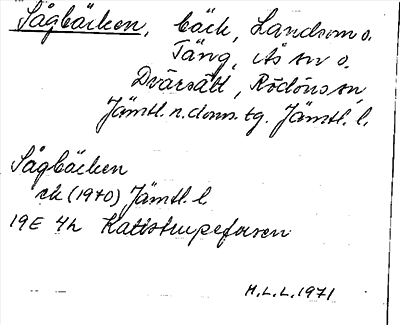 Sågbäcken, bäck, Landsom o.
Täng, Ås sn o.
Dvärsätt, Rödöns sn,
Jämtl. n. doms. tg. Jämtl. l.
Sågbäcken
ek (1940) Jämtl. l
19E 4h Kattstrupeforsen
H.L.L. 1971